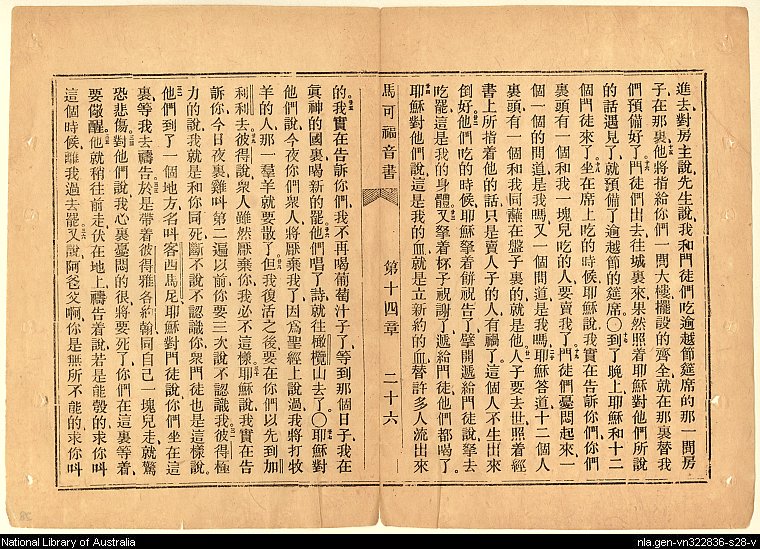 進去對房主說先生說我和門徒們吃逾越節筵席的那一間房
子在那裏他將指給你們一間大樓擺設的齊全就在那裏替我
們預備好了門徒們出去往城裏來果然照着耶穌對他們所說
的話遇見了就預備了逾越節的筵席〇到了晚上耶穌和十二
個門徒來了坐在席上吃的時候耶穌說我實在告訴你們你們
裏頭有一個和我一塊兒吃的人要賣我了門徒們憂悶起來一
個一個的問道是我嗎又一個問道是我嗎耶穌答道十二個人
裏頭有一個和我同蘸在盤子裏的就是他人子要去世照着經
書上所指着他的話只是賣人子的人有禍了這個人不生出來
倒好他們吃的時候耶穌拏着餅祝告了擘開遞給門徒說拏去
吃罷這是我的身體又拏着杯子祝謝了遞給門徒他們都喝了
耶穌對他們說這是我的血就是立新約的血替許多人流出來
馬可福音書 第十四章 二十六
的我實在告訴你們我不再喝葡萄汁子了等到那個日子我在
眞神的國裏喝新的罷他們唱了詩就往橄欖山去了〇耶穌對
他們說今夜你們衆人將厭棄我了因爲聖經上說過我將打牧
羊的人那一羣羊就要散了但我復活之後要在你們以先到加
利利去彼得說衆人雖然厭棄你我必不這樣耶穌說我實在告
訴你今日夜裏雞叫第二遍以前你要三次說不認識我彼得極
力的說我就是和你同死斷不說不認識你衆門徒也是這樣說
他們到了一個地方名叫客西馬尼耶穌對門徒說你們坐在這
裏等我去禱告於是帶着彼得雅各約翰同自己一塊兒走就驚
恐悲傷對他們說我心裏憂悶的很將要死了你們在這裏等着
要儆醒他就稍往前走伏在地上禱告着說若是能彀的求你叫
這個時候離我過去罷又說阿爸父啊你是無所不能的求你叫
National Library of Australia
nla.gen-vn322836-s28-v